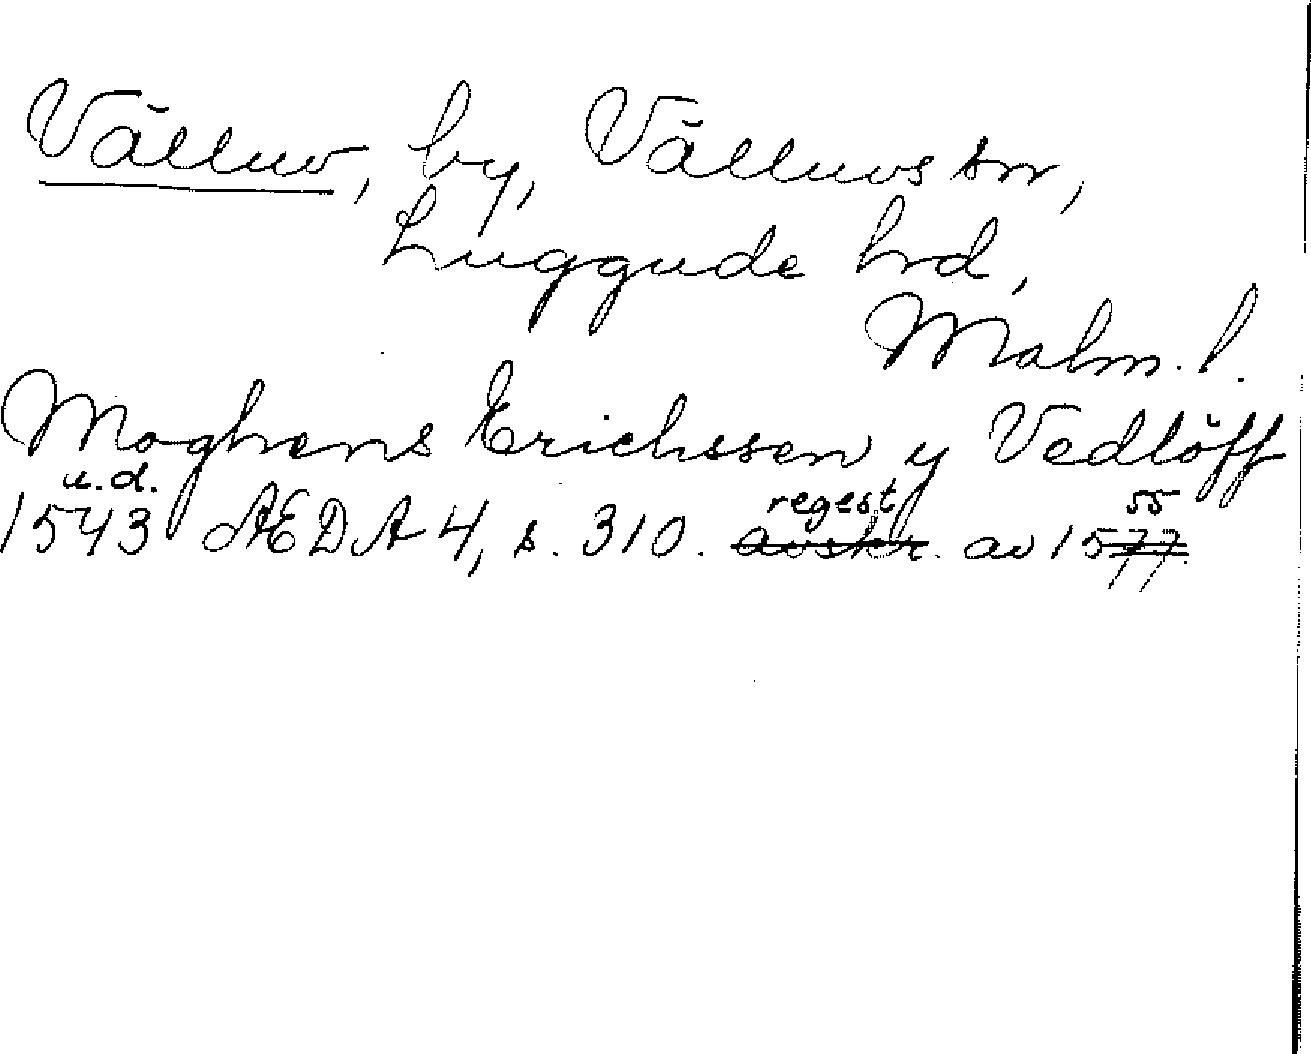 Välluv, by, Välluvs sn,
Luggude hrd,
Malm. l.
Moghens Erichssen y Vedlöff
u.d. regest 55
1543 AEDA 4, s. 310. avskr. av 1577